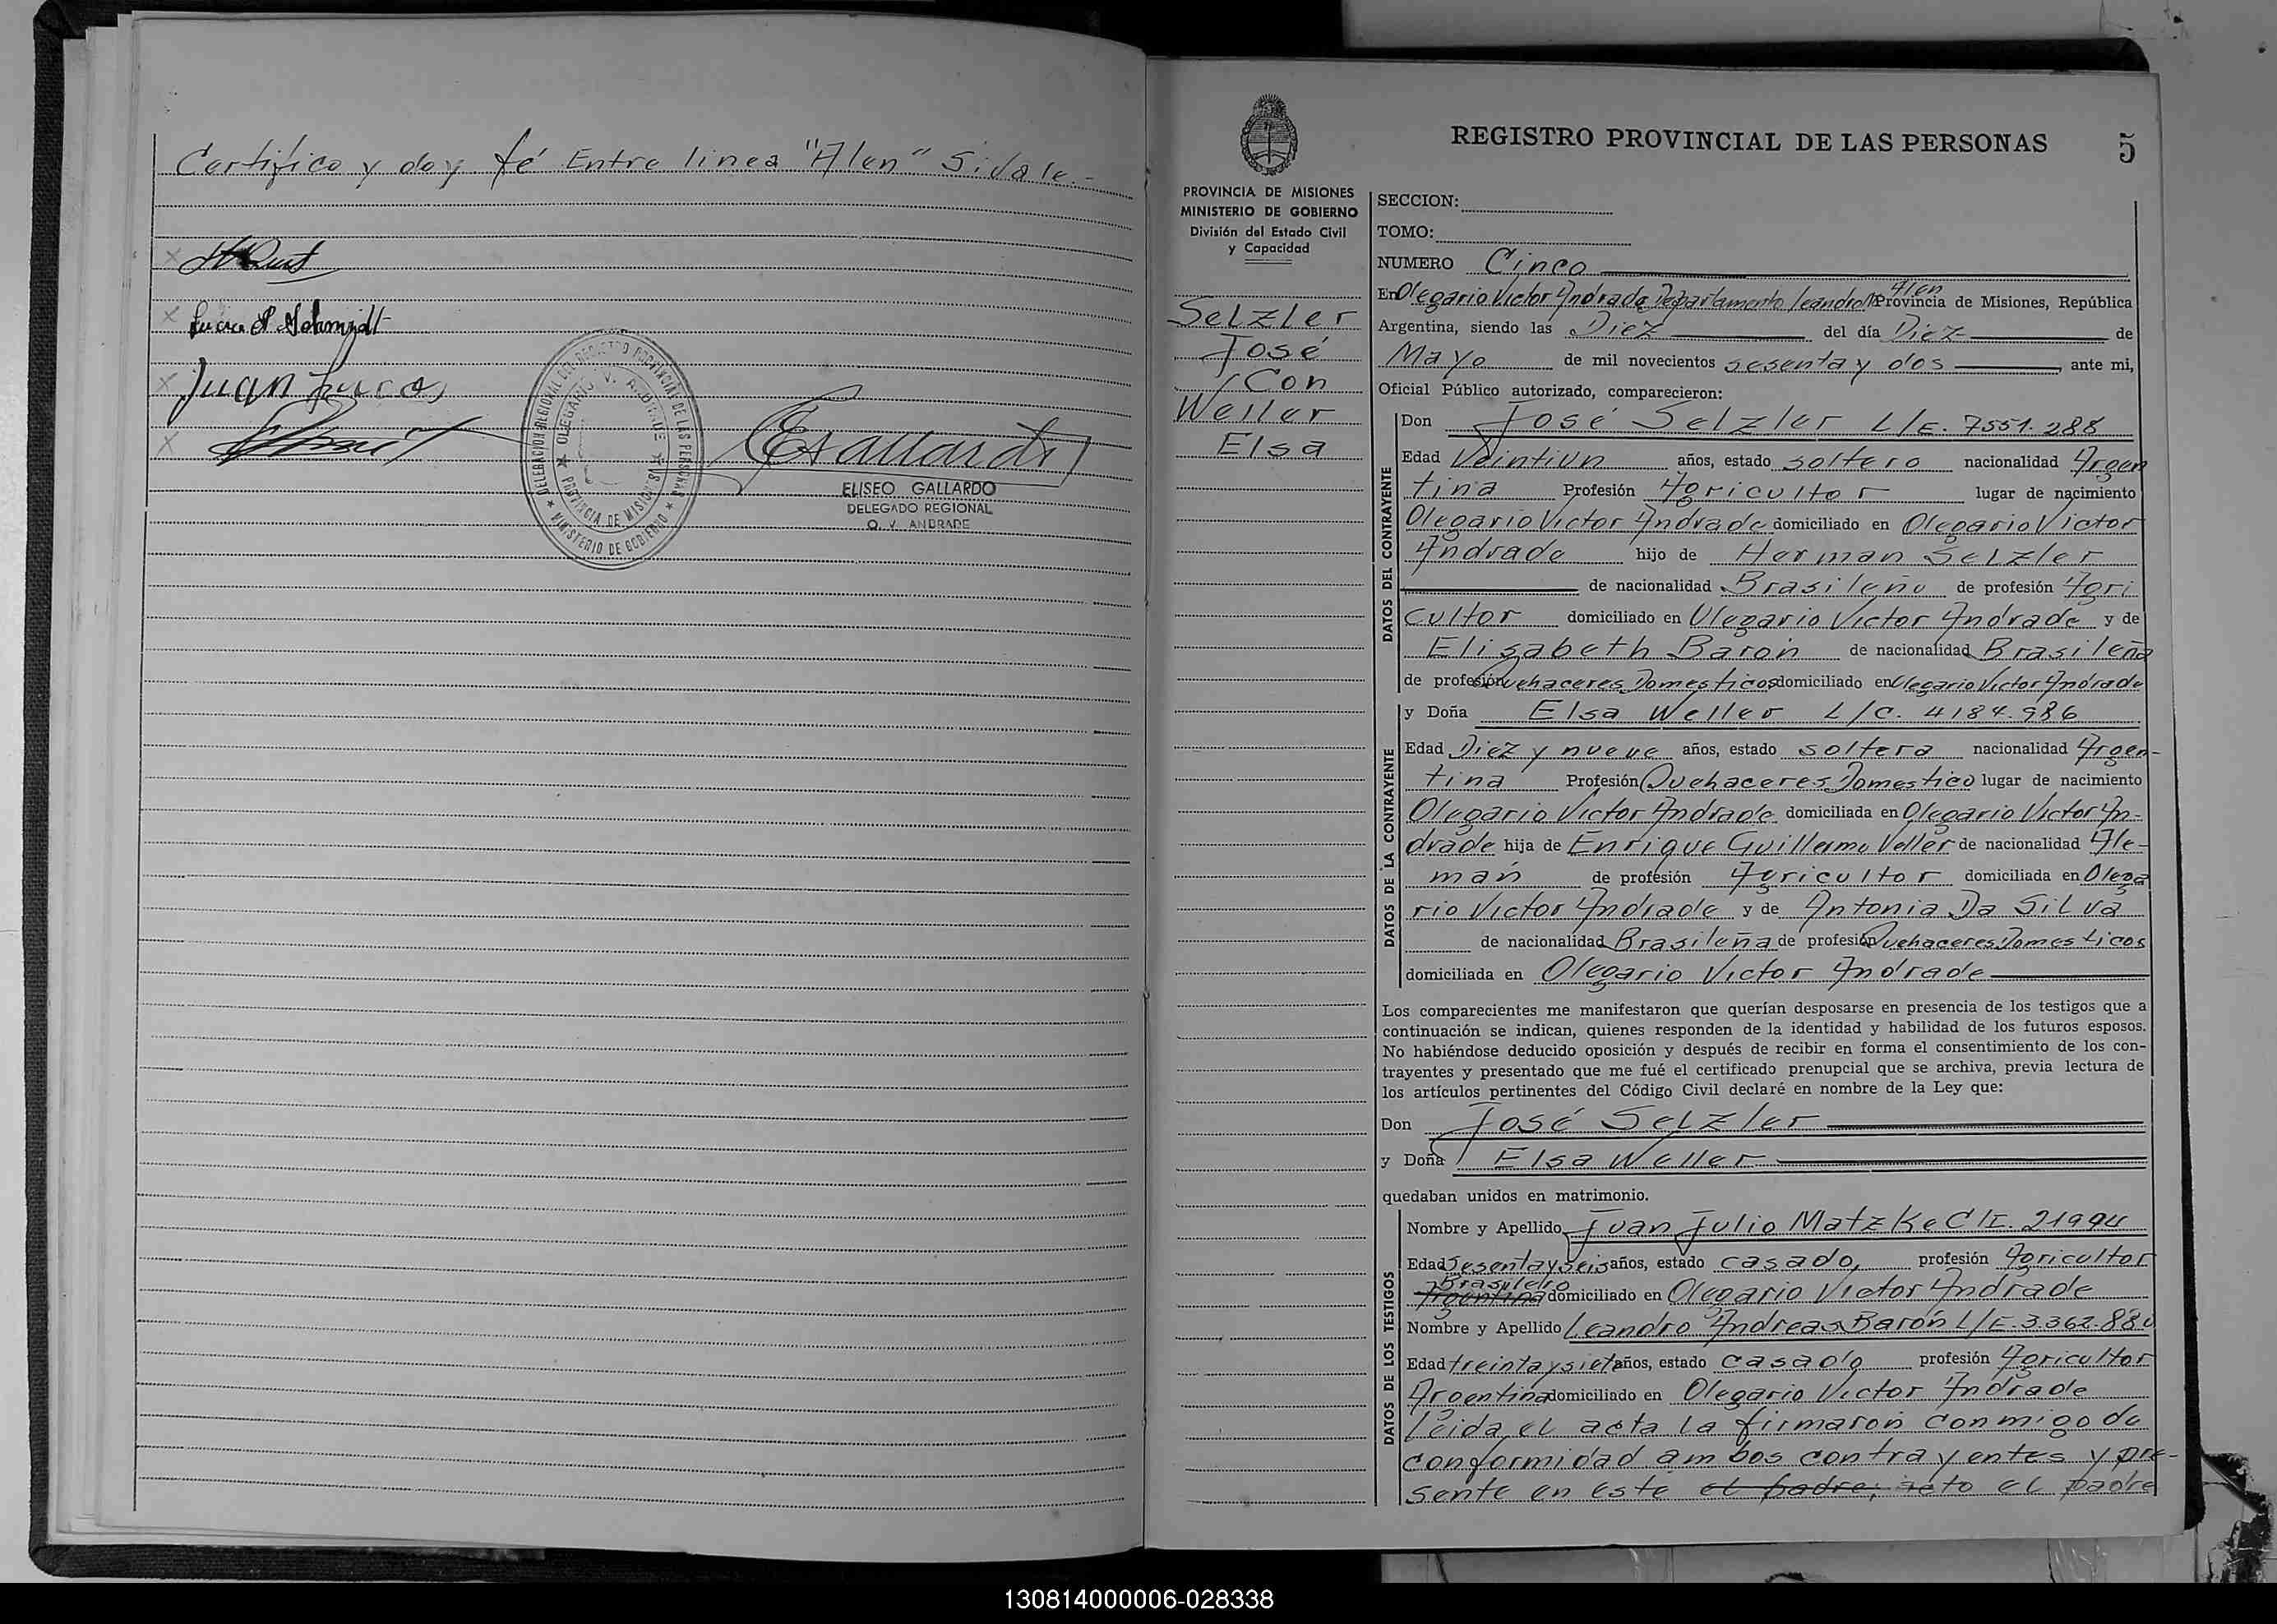 Certifico y doy fé Entre linea "Alen" Si vale.-
Juan Lucas
ELISEO GALLARDO
DELEGADO REGIONAL
O. V. ANDRADE
DELEGACION REGIONAL DEL REGISTRO PROVINCIAL DE LAS PERSONAS
OLEGARIO V. ANDRADE
PROVINCIA DE MISIONES
MINISTERIO DE GOBIERNO
REGISTRO PROVINCIAL DE LAS PERSONAS
5
PROVINCIA DE MISIONES
MINISTERIO DE GOBIERNO
División del Estado Civil
y Capacidad
Selzler
José
Con
Weller
Elsa
SECCION:
TOMO:
NUMERO Cinco
Alen
En Olegario Victor Andrade Departamento Leandro N Provincia de Misiones, República
Argentina, siendo las Diez del día Diez de
Mayo de mil novecientos sesenta y dos, ante mi,
Oficial Público autorizado, comparecieron:
DATOS DEL CONTRAYENTE
Don José Selzler L/E. 7551.288
Edad Veintiun años, estado soltero nacionalidad Argen
tina Profesión Agricultor lugar de nacimiento
Olegario Victor Andrade domiciliado en Olegario Victor
Andrade hijo de Herman Selzler
de nacionalidad Brasileño de profesión Agri
cultor domiciliado en Olegario Victor Andrade y de
Elisabeth Baron de nacionalidad Brasileña
de profesión Quehaceres Domesticos domiciliado en Olegario Victor Andrade
DATOS DE LA CONTRAYENTE
y Doña Elsa Weller L/C. 4184.986
Edad Diez y nueve años, estado soltera nacionalidad Argen-
tina Profesión Quehaceres Domestico lugar de nacimiento
Olegario Victor Andrade domiciliada en Olegario Victor An-
drade hija de Enrique Guillermo Veller de nacionalidad Ale-
mán de profesión Agricultor domiciliada en Olega
rio Victor Andrade y de Antonia Da Silva
de nacionalidad Brasileña de profesión Quehaceres Domesticos
domiciliada en Olegario Victor Andrade
Los comparecientes me manifestaron que querían desposarse en presencia de los testigos que a
continuación se indican, quienes responden de la identidad y habilidad de los futuros esposos.
No habiéndose deducido oposición y después de recibir en forma el consentimiento de los con-
trayentes y presentado que me fué el certificado prenupcial que se archiva, previa lectura de
los artículos pertinentes del Código Civil declaré en nombre de la Ley que:
Don José Selzler
y Doña Elsa Weller
quedaban unidos en matrimonio.
DATOS DE LOS TESTIGOS
Nombre y Apellido Juan Julio Matzke C/I. 21994
Edad Sesenta y seis años, estado casado, profesión Agricultor
Brasilero
Argentina domiciliado en Olegario Victor Andrade
Nombre y Apellido Leandro Andreas Barón L/E. 3.362.880
Edad treinta y siete años, estado casado profesión Agricultor
Argentina domiciliado en Olegario Victor Andrade
Leida el acta la firmaron conmigo de
conformidad ambos contrayentes y pre-
sente en este el padre, acto el padre
130814000006-028338